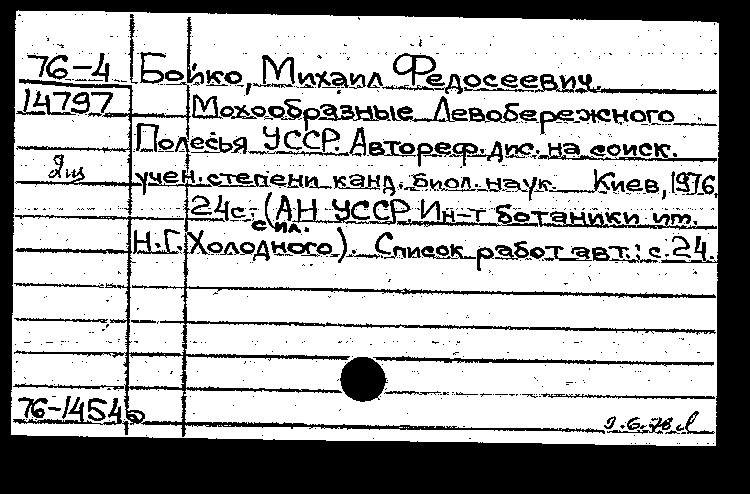 76-4 Бойко, Михаил Федосеевич.
14797 Мохообразные Левобережного
Полесья УССР. Автореф. дис. на соиск.
учен. степени канд. биол. наук. Киев, 1976.
24с. (АН УССР. Ин-т ботаники им.
с ил.
Н.Г. Холодного). Список работ авт.: с. 24.
76-14546